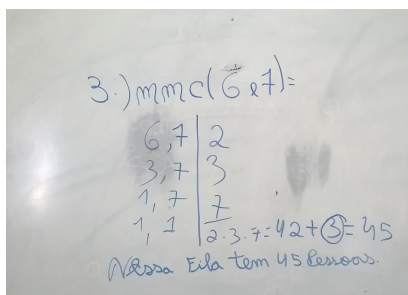 3.) mmc(6 e 7)=
6, 7 | 2
3, 7 | 3
1, 7 | 7
1, 1 | 2.3.7=42+3=45
Nessa Fila tem 45 Pessoas.